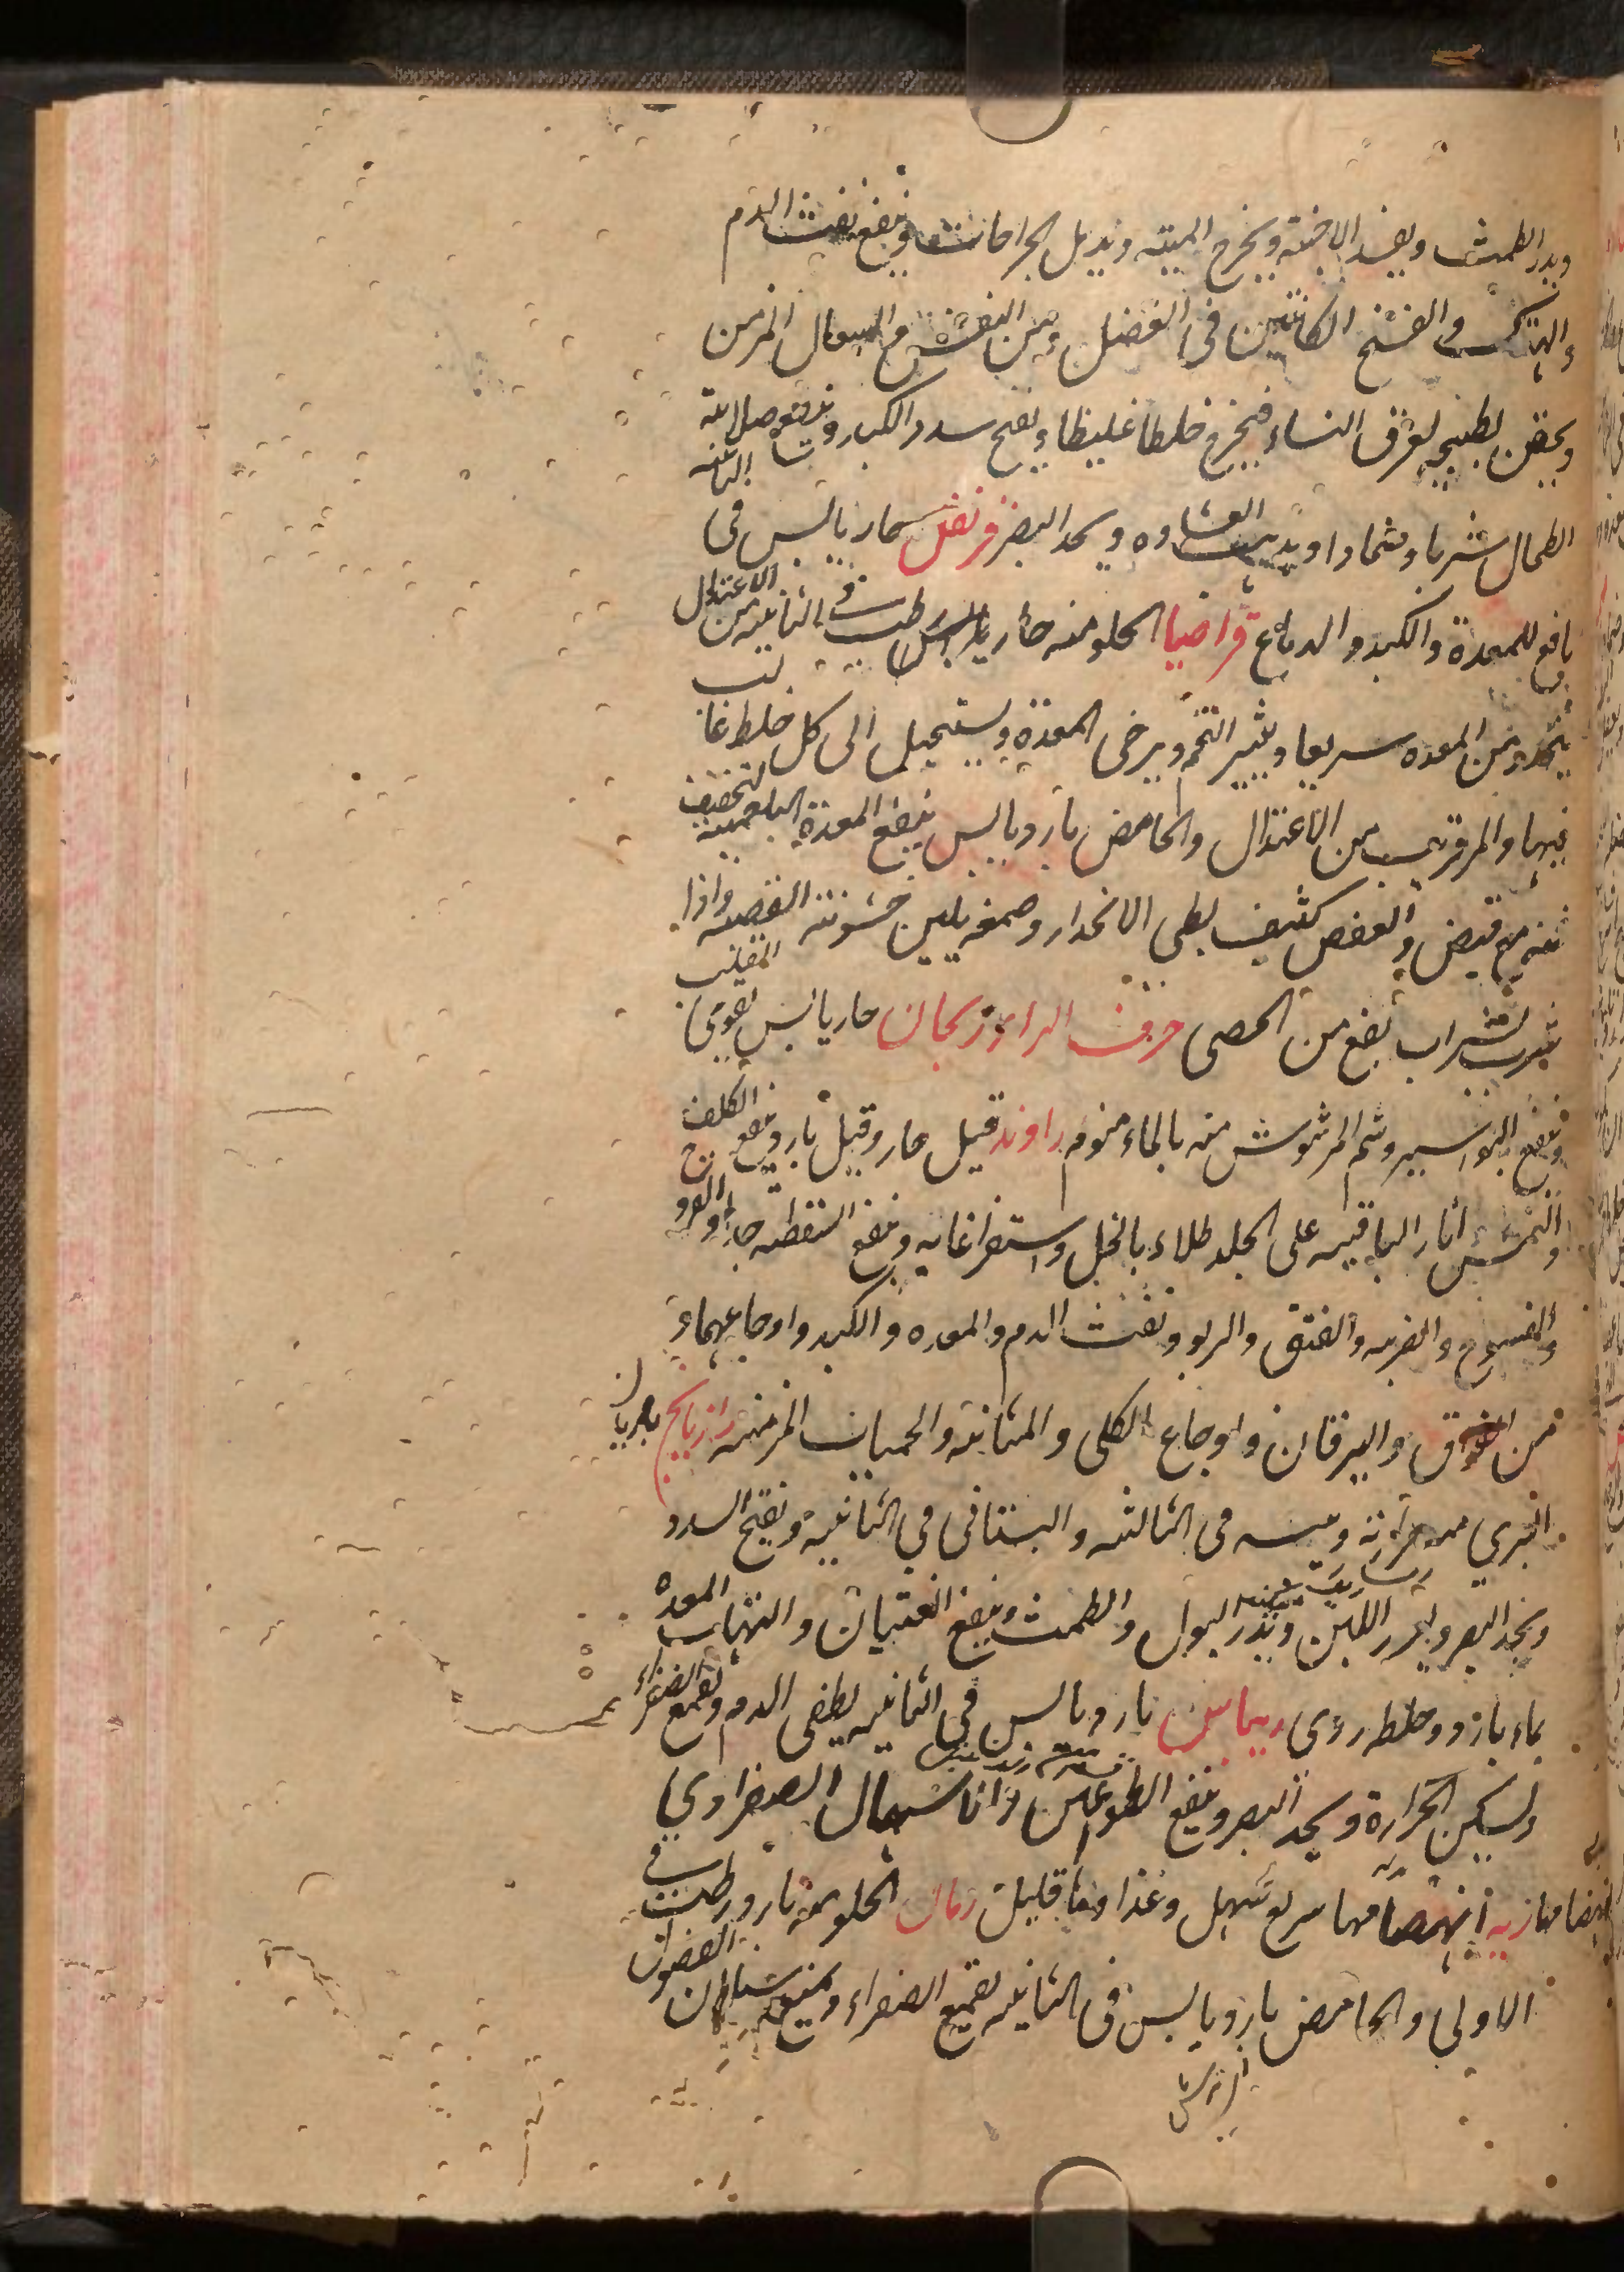 ويدر الطمث ويفسد الاجنة ويخرج الميته ويدمل الجراحات وينفع نفث الدم
والهتك والفسخ الكائنين في العضل ومن النفس والسعال المزمن
ويحقن بطبيخه لعرق النساء فيخرج خلطا غليظا ويفتح سدد الكبد وينفع صلابة
الطحال شربا وضمادا ويذيب الغشاوه ويحد البصر قرنفل حار يابس في الثالثه
نافع للمعدة والكبد والدماغ قراصيا الحلو منه حار يابس رطب في الثانيه من الاعتدال
ينحدر من المعده سريعا ويثير التخم ويرخي المعدة ويستحيل الى كل خلط غالب
فيها والمر قريب من الاعتدال والحامض بارد يابس ينفع المعدة البلغمية لتجفيف
فيه مع قبض والعفص كثيف بطي الانحدار وصمغه يلين خشونة القصبه واذا
شرب بشراب نفع من الحصى حرف الراء ريحان حار يابس يقوي القلب
وينفع البواسير وشم المرشوش منه بالماء منوم راوند قيل حار وقيل بارد ينفع الكلف
والنمش آثار الباقيه على الجلد طلاء بالخل واستفراغا به وينفع السقطه والقروح
والفسوخ والضربه والفتق والربو ونفث الدم والمعده والكبد واوجاعهما و
من الفواق واليرقان واوجاع الكلى والمثانه والحميات المزمنه رازيانج
البري حرارته ويبسه في الثالثه والبستاني في الثانية ويفتح السدد
ويحد البصر ويغزر اللبن ويدر البول والطمث وينفع الغثيان والتهاب المعدة
بماء بارد وخلطه ردى ريباس بارد يابس في الثانيه يطفي الدم ويقمع الصفراء
ويسكن الحرارة ويحد البصر وينفع الطواعين والاسهال الصفراوي
انهضامها سريع سهل وغذاوها قليل رمان الحلو منه بارد رطب في
الاولى والحامض بارد يابس في الثانيه يقمع الصفراء ويمنع سيلان الفضول